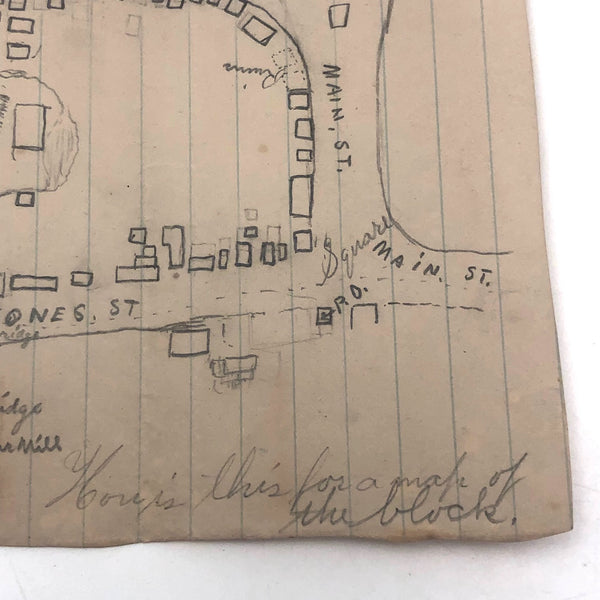 Ruins
MAIN, ST.
Square
MAIN. ST.
P.O.
ONES, ST
ridge
idge
Mill
How is this for a map of
the block.